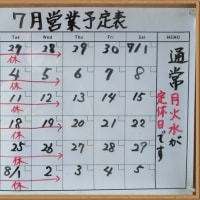 7月営業予定表
Tue Wed Thu Fri Sat MEMO
27 28 29 30 7/1
休
4 5 6 7 8
休
11 12 13 14 15
休
18 19 20 21 22
休
25 26 27 28 29
休
8/1 2 3 4 5
休
通常
月火水が
定休日です